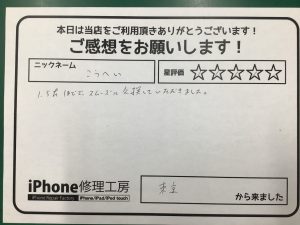 本日は当店をご利用頂きありがとうございます！
ご感想をお願いします！
ニックネーム
こうへい
星評価 ☆☆☆☆☆
スムーズに交換していただきました。
iPhone修理工房
iPhone Repair Factory iPhone/iPad/iPod touch
東室
から来ました